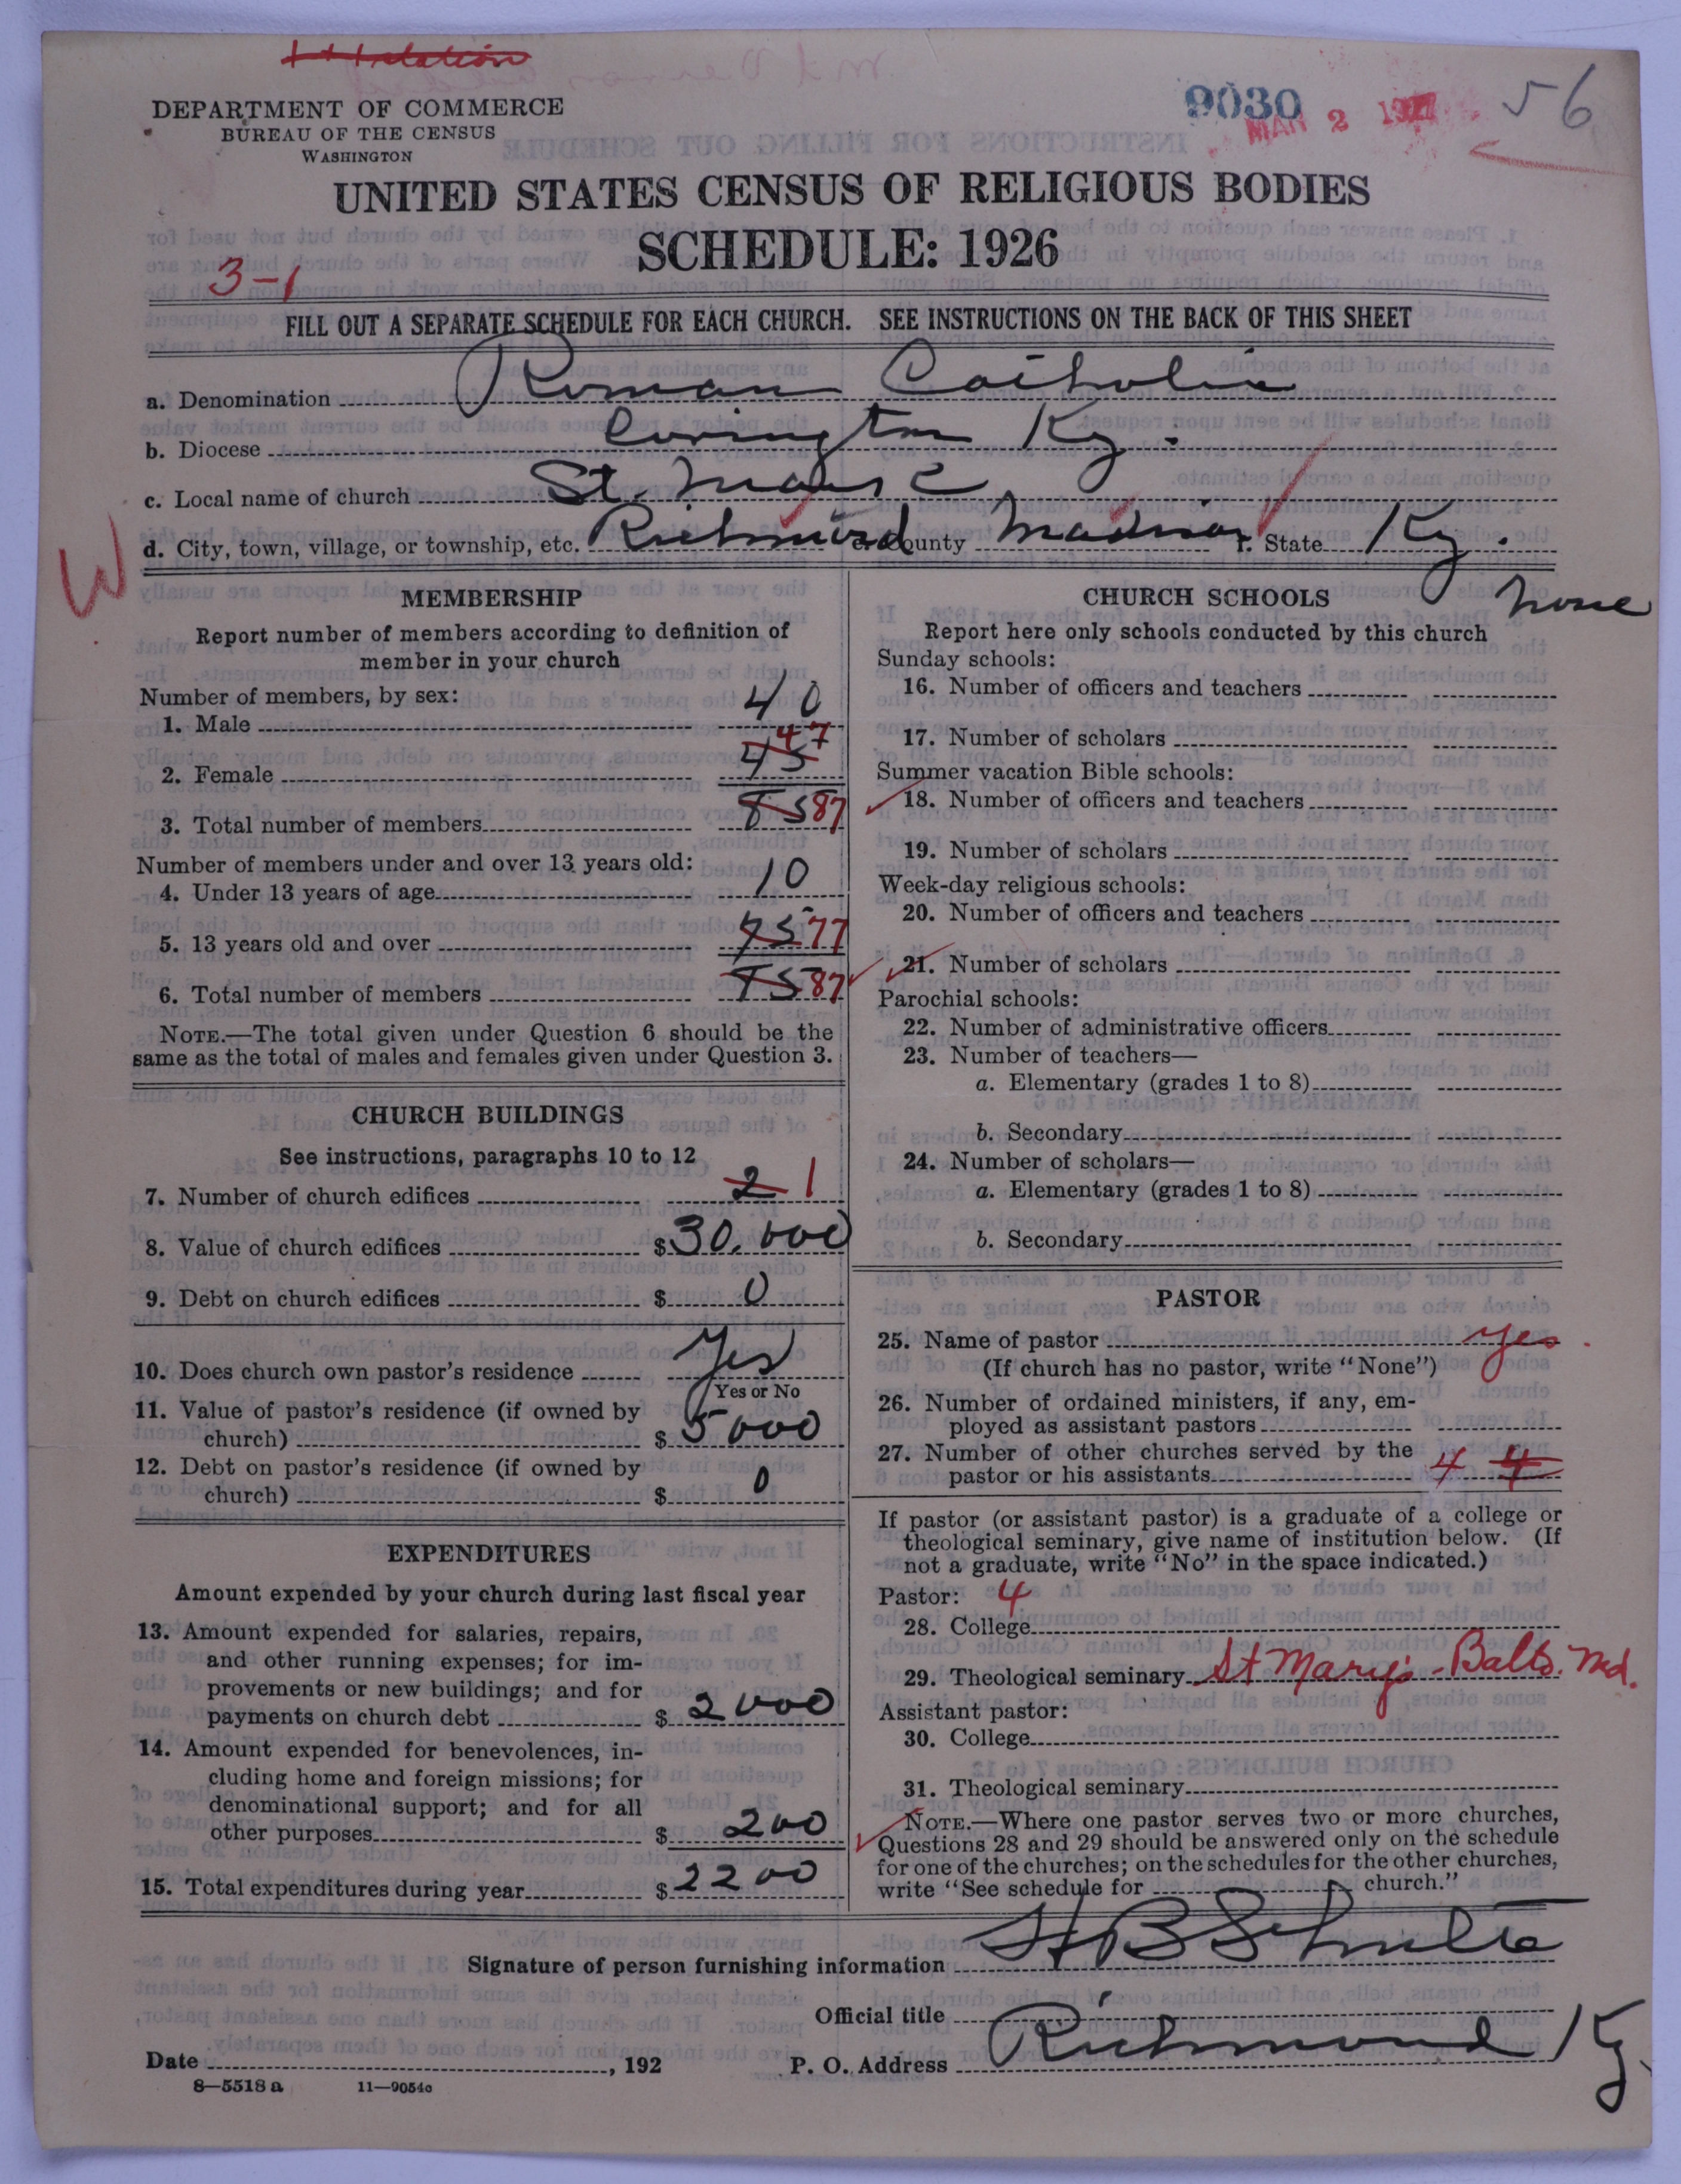 DEPARTMENT OF COMMERCE
BUREAU OF THE CENSUS
WASHINGTON
9030
MAR 2 1927
56
UNITED STATES CENSUS OF RELIGIOUS BODIES
SCHEDULE: 1926
3-1
FILL OUT A SEPARATE SCHEDULE FOR EACH CHURCH. SEE INSTRUCTIONS ON THE BACK OF THIS SHEET
a. Denomination Roman Catholic
b. Diocese Covington Ky.
c. Local name of church St. Mark
W
d. City, town, village, or township, etc. Richmond e. County Madison f. State Ky.
MEMBERSHIP
Report number of members according to definition of
member in your church
Number of members, by sex:
1. Male 40
2. Female 45 47
3. Total number of members 85 87
Number of members under and over 13 years old:
4. Under 13 years of age 10
5. 13 years old and over 75 77
6. Total number of members 85 87
NOTE.—The total given under Question 6 should be the
same as the total of males and females given under Question 3.
CHURCH BUILDINGS
See instructions, paragraphs 10 to 12
7. Number of church edifices 2 1
8. Value of church edifices $30,000
9. Debt on church edifices $ 0
10. Does church own pastor's residence Yes
Yes or No
11. Value of pastor's residence (if owned by
church) $ 5000
12. Debt on pastor's residence (if owned by
church) $ 0
EXPENDITURES
Amount expended by your church during last fiscal year
13. Amount expended for salaries, repairs,
and other running expenses; for im-
provements or new buildings; and for
payments on church debt $ 2000
14. Amount expended for benevolences, in-
cluding home and foreign missions; for
denominational support; and for all
other purposes $ 200
15. Total expenditures during year $ 2200
CHURCH SCHOOLS
none
Report here only schools conducted by this church
Sunday schools:
16. Number of officers and teachers
17. Number of scholars
Summer vacation Bible schools:
18. Number of officers and teachers
19. Number of scholars
Week-day religious schools:
20. Number of officers and teachers
21. Number of scholars
Parochial schools:
22. Number of administrative officers
23. Number of teachers—
a. Elementary (grades 1 to 8)
b. Secondary
24. Number of scholars—
a. Elementary (grades 1 to 8)
b. Secondary
PASTOR
25. Name of pastor yes
(If church has no pastor, write "None")
26. Number of ordained ministers, if any, em-
ployed as assistant pastors
27. Number of other churches served by the
pastor or his assistants 4 4
If pastor (or assistant pastor) is a graduate of a college or
theological seminary, give name of institution below. (If
not a graduate, write "No" in the space indicated.)
Pastor: 4
28. College
29. Theological seminary St Mary's - Balto. Md.
Assistant pastor:
30. College
31. Theological seminary
NOTE.—Where one pastor serves two or more churches,
Questions 28 and 29 should be answered only on the schedule
for one of the churches; on the schedules for the other churches,
write "See schedule for church."
Signature of person furnishing information H B Schulte
Official title
Date , 192
P. O. Address Richmond Ky.
8—5518 a 11—9054c